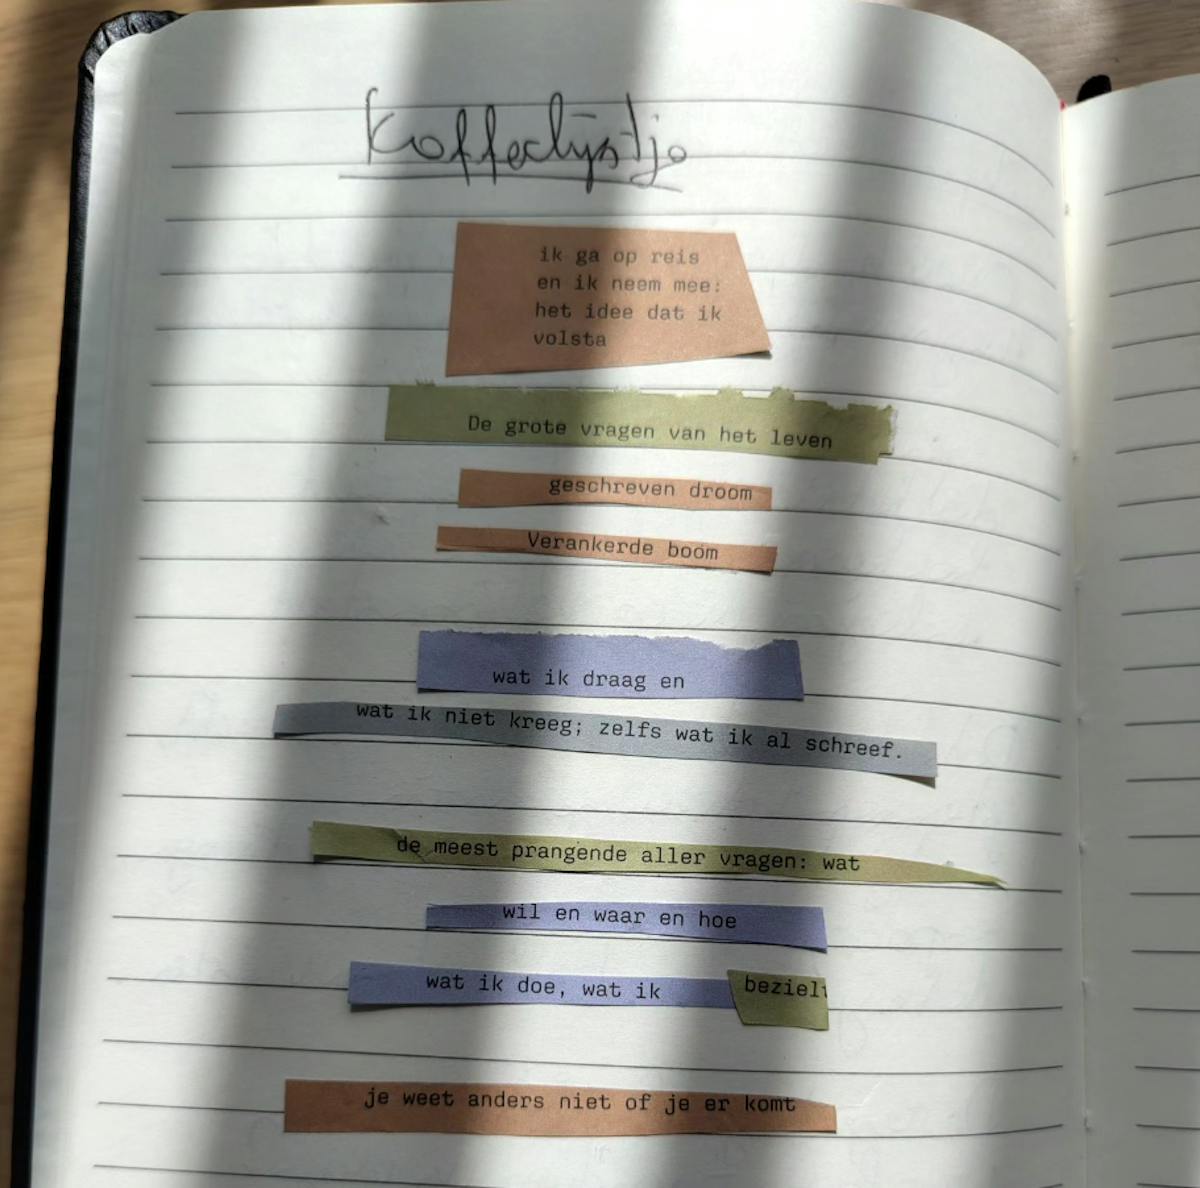 Kofferlijstje
ik ga op reis
en ik neem mee:
het idee dat ik
volsta
De grote vragen van het leven
geschreven droom
Verankerde boom
wat ik draag en
wat ik niet kreeg; zelfs wat ik al schreef.
de meest prangende aller vragen: wat
wil en waar en hoe
wat ik doe, wat ik bezielt
je weet anders niet of je er komt